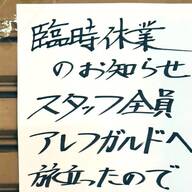 臨時休業
のお知らせ
スタッフ全員
アレフガルドへ
旅立ったので